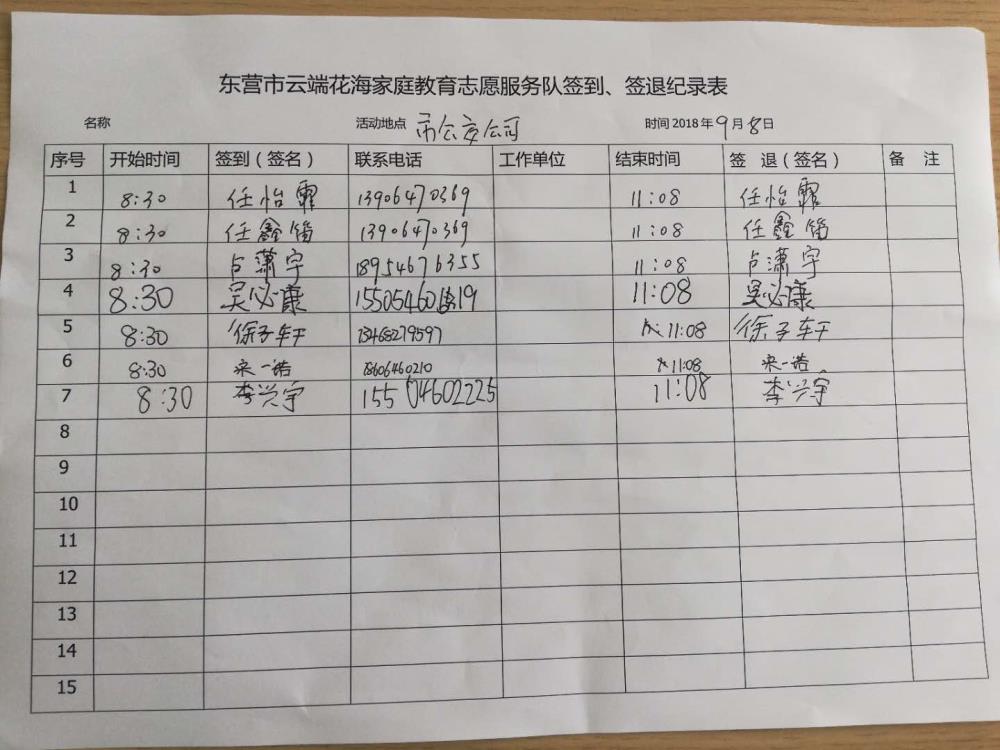 东营市云端花海家庭教育志愿服务队签到、签退纪录表
名称 活动地点 市公交公司 时间 2018 年 9 月 8 日
序号 开始时间 签到（签名） 联系电话 工作单位 结束时间 签 退（签名） 备 注
1 8:30 任怡霏 13906470369 11:08 任怡霏
2 8:30 任鑫 13906470369 11:08 任鑫
3 8:30 卢潇宇 18954676355 11:08 卢潇宇
4 8:30 吴必康 11:08 吴必康
5 8:30 徐子轩 11:08 徐子轩
6 8:30 宋一诺 11:08 宋一诺
7 8:30 李兴宇 15504602225 11:08 李兴宇
8
9
10
11
12
13
14
15